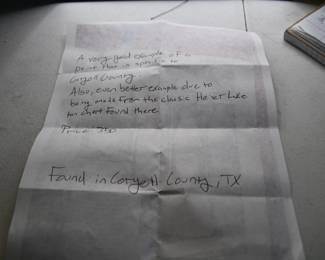 A very good example of a
point that is specific to
Coryell County.
Also, even better example due to
being made from the classic
tan chert found there.
Found in Coryell County, TX